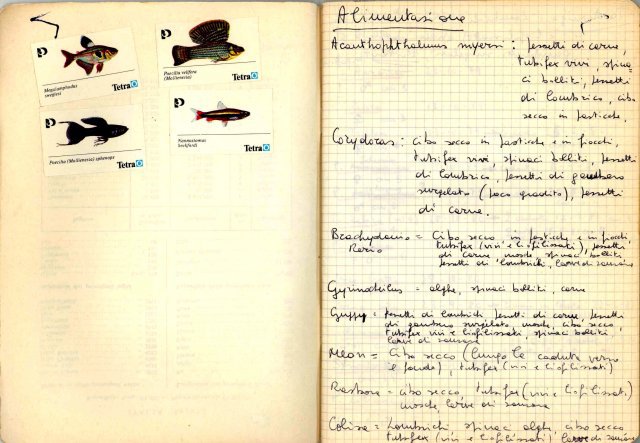 Megalamphodus
sweglesi
Tetra
Poecilia velifera
(Mollienesia)
Tetra
Poecilia (Mollienesia) sphenops
Tetra
Nannostomus
beckfordi
Tetra
Alimentazione
Acanthophthalmus myersi : pezzetti di carne,
tubifex vivi, spina
ci bolliti, pezzetti
di lombrico, cibo
secco in pastiche.
Corydoras : cibo secco in pastiche e in fiocchi,
tubifex vivi, spinaci bolliti, pezzetti
di lombrico, pezzetti di gambero
surgelato (poco gradito), pezzetti
di carne.
Brachydanio = Cibo secco in pastiche e in fiocchi
Rerio tubifex (vivi e liofilissati), pezzetti
di carne, mosche, spinaci bolliti,
pezzetti di lombrichi, larve di zanzare
Gyrinocheilus = alghe, spinaci bolliti, carne
Guppy = pezzetti di lombrichi, pezzetti di carne, pezzetti
di gambero surgelato, mosche, cibo secco,
tubifex vivi e liofilissati, spinaci bolliti,
larve di zanzare
Neon = Cibo secco (lungo la caduta verso
il fondo), tubifex (vivi e liofilissati)
Rasbora = cibo secco, tubifex (vivi e liofilissati)
mosche, larve di zanzare
Colisa = Lombrichi, spinaci, alghe, cibo secco,
tubifex (vivi e liofilissati), larve di zanzare